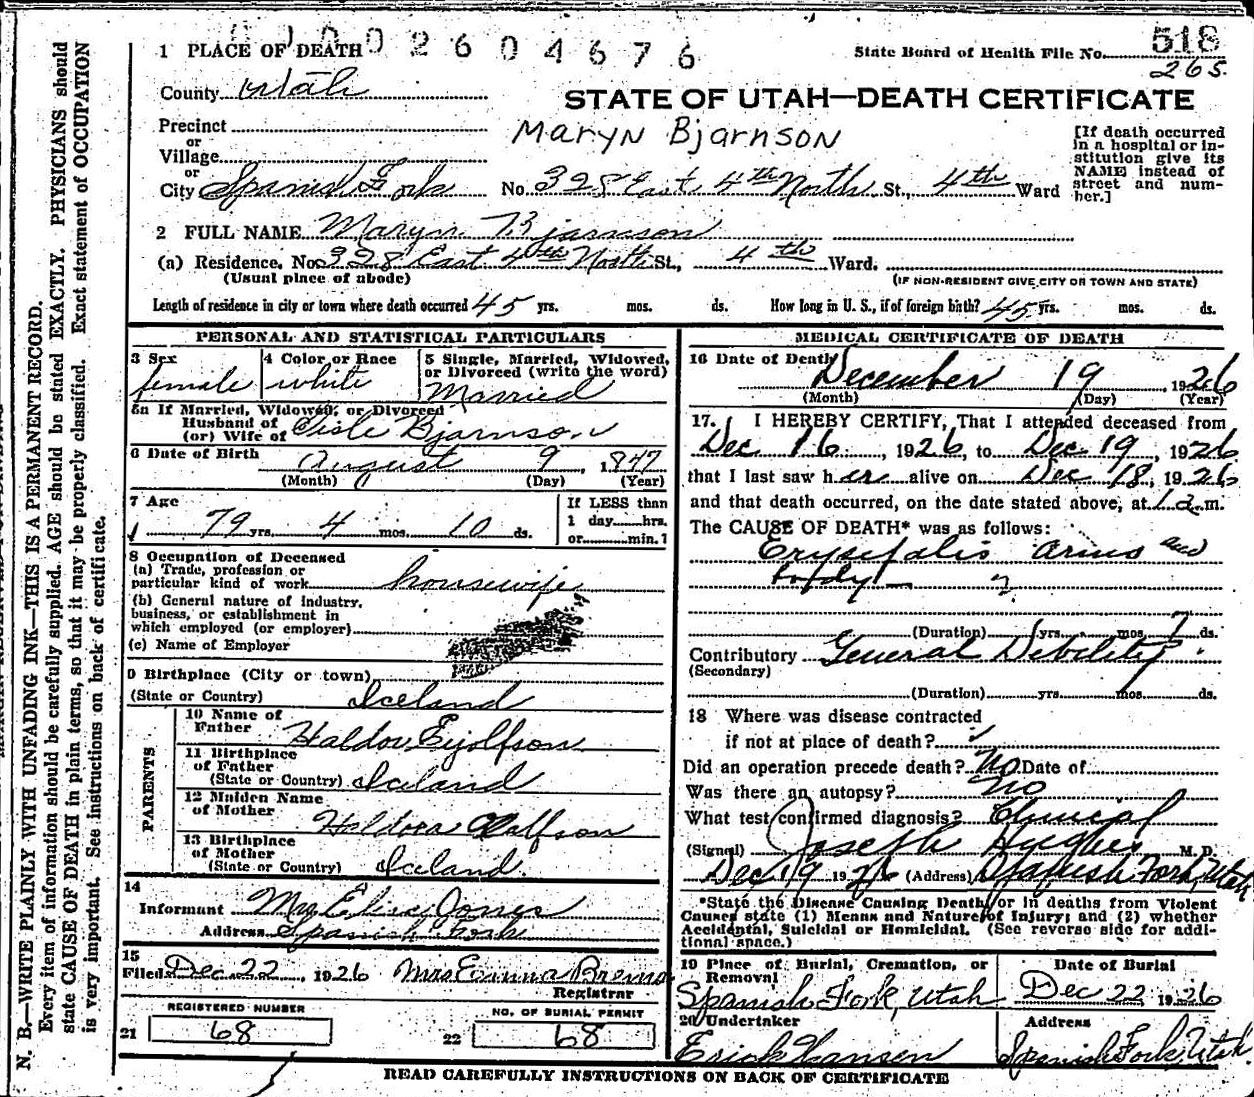 0 1 0 0 2 6 0 4 6 7 6
1 PLACE OF DEATH
State Board of Health File No. 518
265.
County Utah
STATE OF UTAH—DEATH CERTIFICATE
Precinct
or
Village
or
City Spanish Fork
Maryn Bjarnson
No. 328 East 4th North St., 4th Ward
[If death occurred
in a hospital or in-
stitution give its
NAME instead of
street and num-
ber.]
2 FULL NAME Maryn Bjarnson
(a) Residence. No. 328 East 4th North St., 4th Ward.
(Usual place of abode)
(IF NON-RESIDENT GIVE CITY OR TOWN AND STATE)
Length of residence in city or town where death occurred 45 yrs. mos. ds. How long in U. S., if of foreign birth? 45 yrs. mos. ds.
PERSONAL AND STATISTICAL PARTICULARS
3 Sex
female
4 Color or Race
white
5 Single, Married, Widowed,
or Divorced (write the word)
Married
5a If Married, Widowed, or Divorced
Husband of
(or) Wife of Gisle Bjarnson
6 Date of Birth
August 9, 1847
(Month) (Day) (Year)
7 Age
79 yrs. 4 mos. 10 ds.
If LESS than
1 day......hrs.
or......min.?
8 Occupation of Deceased
(a) Trade, profession or
particular kind of work housewife
(b) General nature of industry,
business, or establishment in
which employed (or employer)
(c) Name of Employer
9 Birthplace (City or town)
(State or Country) Iceland
PARENTS
10 Name of
Father Haldor Eyjolfson
11 Birthplace
of Father
(State or Country) Iceland
12 Maiden Name
of Mother Haldora Olaffson
13 Birthplace
of Mother
(State or Country) Iceland.
14
Informant Mrs Elise Jones
Address Spanish Fork
15
Filed Dec 22, 1926 Mrs Emma Brems
Registrar
REGISTERED NUMBER
21 68
NO. OF BURIAL PERMIT
22 68
MEDICAL CERTIFICATE OF DEATH
16 Date of Death
December 19, 1926
(Month) (Day) (Year)
17. I HEREBY CERTIFY, That I attended deceased from
Dec 16, 1926, to Dec 19, 1926
that I last saw her alive on Dec 18, 1926
and that death occurred, on the date stated above, at 1 a.m.
The CAUSE OF DEATH* was as follows:
Erysipalis arms and
body
(Duration) yrs. mos. 7 ds.
Contributory General Debility.
(Secondary)
(Duration) yrs. mos. ds.
18 Where was disease contracted
if not at place of death?
Did an operation precede death? No Date of
Was there an autopsy? no
What test confirmed diagnosis? Clinical
(Signed) Joseph Hughes M. D.
Dec 19 1926 (Address) Spanish Fork, Utah
*State the Disease Causing Death, or in deaths from Violent
Causes state (1) Means and Nature of Injury; and (2) whether
Accidental, Suicidal or Homicidal. (See reverse side for addi-
tional space.)
19 Place of Burial, Cremation, or
Removal
Spanish Fork, Utah
Date of Burial
Dec 22 1926
20 Undertaker
Erick Hansen
Address
Spanish Fork, Utah
READ CAREFULLY INSTRUCTIONS ON BACK OF CERTIFICATE
N. B.—WRITE PLAINLY WITH UNFADING INK—THIS IS A PERMANENT RECORD.
Every item of information should be carefully supplied. AGE should be stated EXACTLY. PHYSICIANS should
state CAUSE OF DEATH in plain terms, so that it may be properly classified. Exact statement of OCCUPATION
is very important. See instructions on back of certificate.